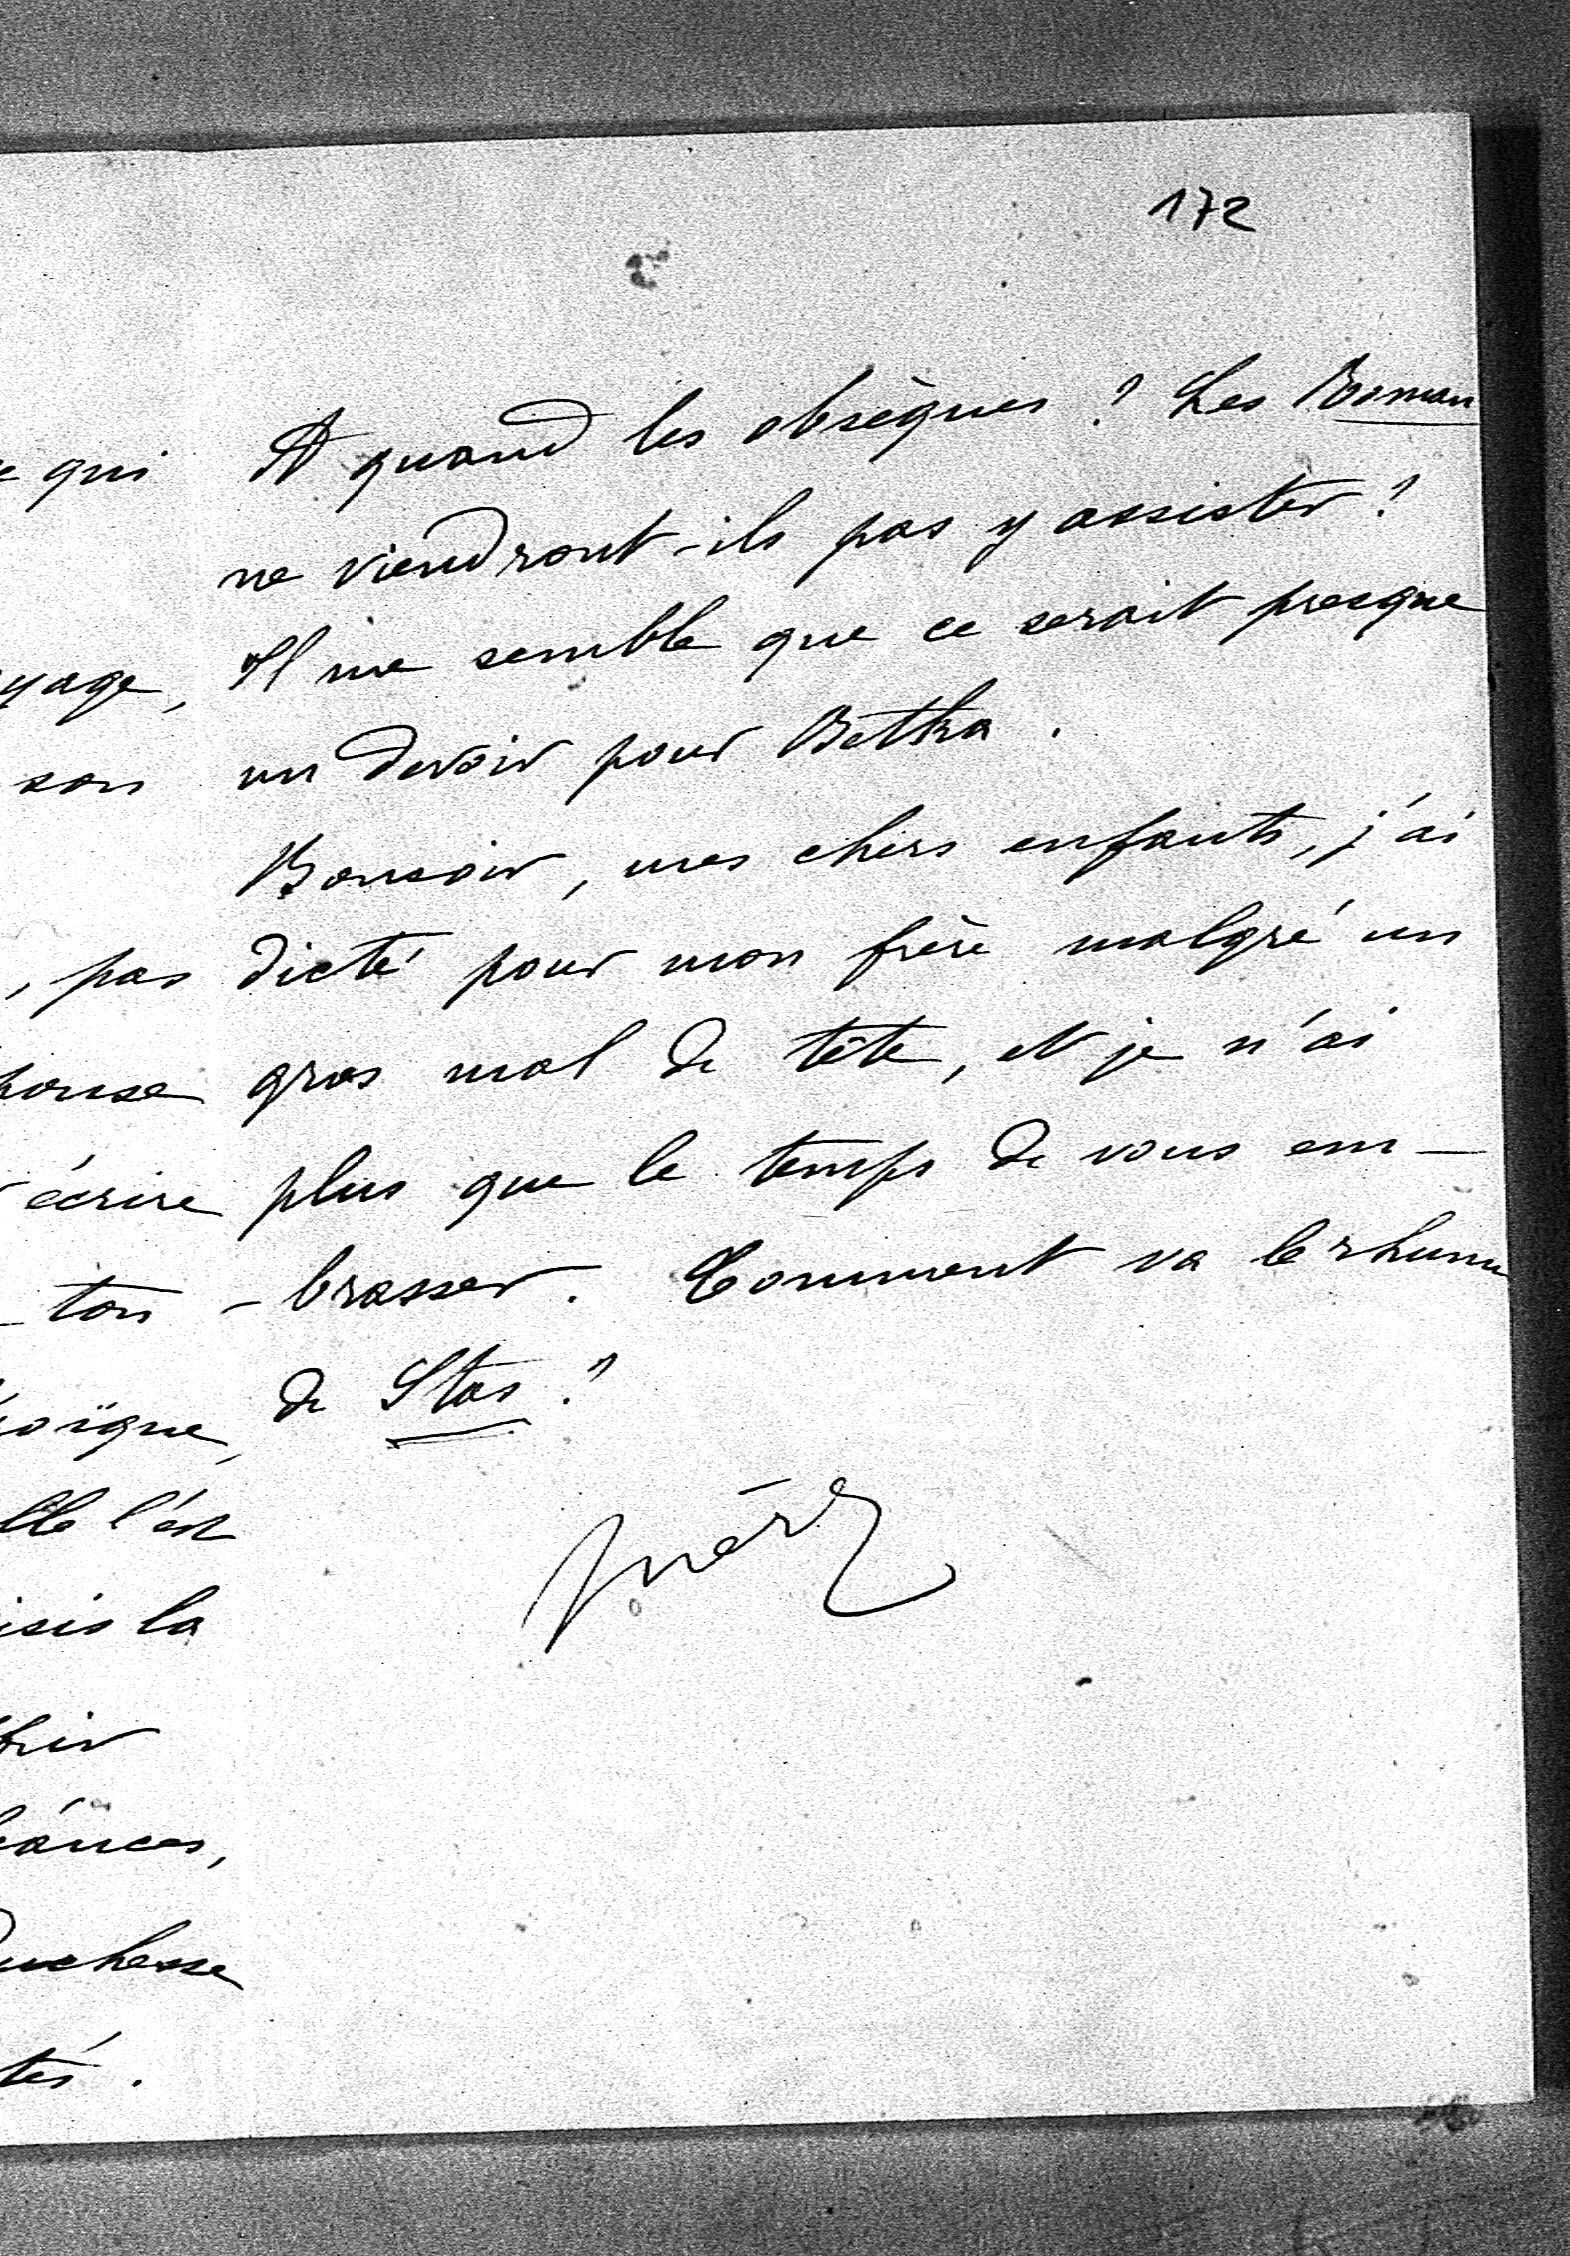 172
A quand les obsèques ? Les Roman
ne viendront-ils pas y assister ?
Il me semble que ce serait presque
un devoir pour Betka .
Bonsoir, mes chers enfants, j'ai
dicté pour mon frère malgré un
gros mal de tête, et je n'ai
plus que le temps de vous em-
-brasser. Comment va le rhume
de Stas ?
qui
yage,
son
, pas
écrire
ton
oïque,
lle l'est
isis la
uchesse
tés.